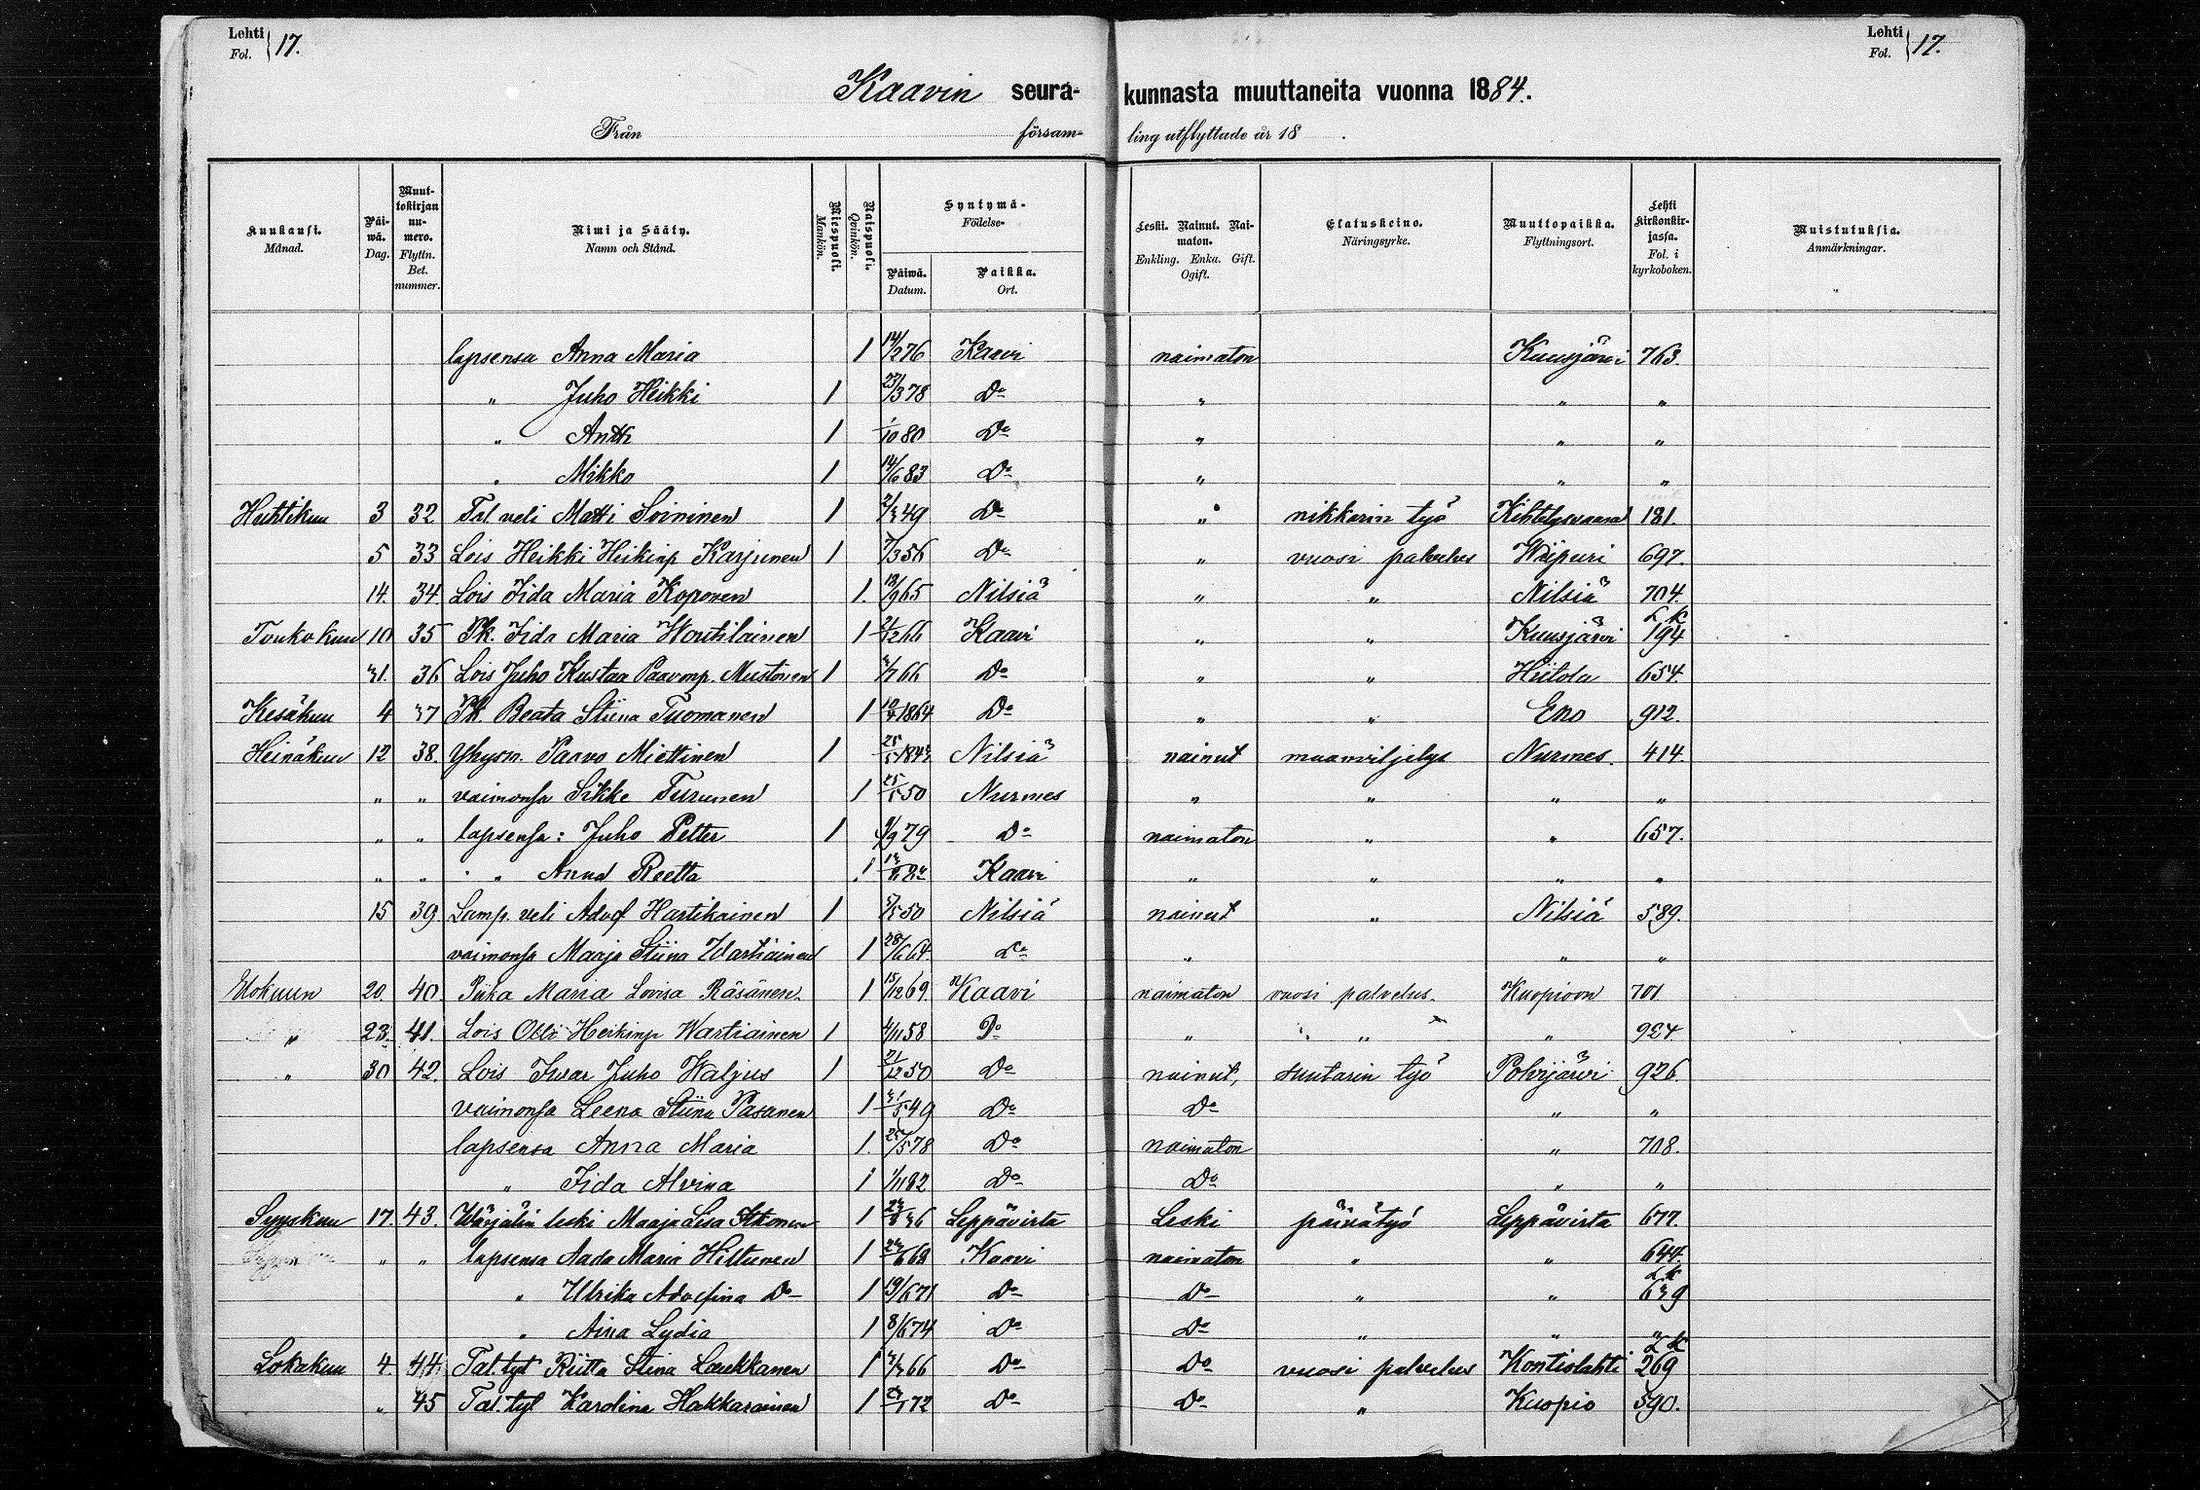 Lehti Fol. } 17. Lehti Fol. } 17.
Kaavin seura- kunnasta muuttaneita vuonna 1884.
Från församling utflyttade år 18 .
Kuukausi. Månad. Päiwä. Dag. Muuttokirjan numero. Flyttn. Bet. nummer. Nimi ja Sääty. Namn och Stånd. Miespuoli. Mankön. Naispuoli. Qvinkön. Syntymä- Födelse- Päiwä. Datum. Paikka. Ort. Leski. Nainut. Naimaton. Enkling. Enka. Gift. Ogift. Elatuskeino. Näringsyrke. Muuttopaikka. Flyttningsort. Lehti kirkonkirjassa. Fol. i kyrkoboken. Muistutuksia. Anmärkningar.
lapsensa Anna Maria 1 14/2 76 Kaavi naimaton Kuusjärvi 763.
„ Juho Heikki 1 23/3 78 Do „ „ „
„ Antti 1 1/10 80 Do „ „ „
„ Mikko 1 14/6 83 Do „ „ „
Huhtikuu 3 32 Tal. veli Matti Soininen 1 49 Do „ nikkarin työ Kihtelysvaara 181.
5 33 Lois Heikki Heikinp Karjunen 1 7/3 56 Do „ vuosi palvelus Wiipuri 697.
14. 34. Lois Iida Maria Koponen 1. 13/9 65 Nilsiä „ „ Nilsiä 704.
Toukokuu 10 35 Pk. Iida Maria Woutilainen 1 2/12 66 Kaavi „ „ Kuusjärvi L.K 194
31. 36 Lois Juho Kustaa Paavonp. Mustonen 1 66 Do „ „ Hiitola 654.
Kesäkuu 4 37 Pk. Beata Stiina Tuomanen 1 1864 Do „ „ Eno 912.
Heinäkuu 12 38. Yhysm. Paavo Miettinen 1 25/5 1843 Nilsiä nainut maanviljelys Nurmes. 414.
„ „ vaimonsa Sikke Turunen 1 25/5 50 Nurmes „ „ „ „
„ „ lapsensa: Juho Petter 1 9/9 79 Do naimaton „ „ 657.
„ „ „ Anna Reetta 1 Kaavi „ „ „ „
15 39 Lamp. veli Adolf Hartikainen 1 5/5 50 Nilsiä nainut „ Nilsiä 589.
vaimonsa Maaja Stiina Wartiainen 1 28/6 64. Do „ „ „
Elokuun 20. 40 Piika Maria Lovisa Räsänen. 1 15/12 69. Kaavi naimaton vuosi palvelus. Kuopioon 701
„ 23. 41. Lois Olli Heikinp Wartiainen 1 4/11 58 Do „ „ „ 924.
„ 30 42. Lois Iwar Juho Waljus 1 21/12 50 Do nainut, suutarin työ Polvijärvi 926.
vaimonsa Leena Stiina Pasanen 1 49 Do Do „ „
lapsensa Anna Maria 1. 25/5 78 Do naimaton „ 708.
„ Iida Alvina 1 1/11 82 Do Do „ „
Syyskuu 17. 43. Wärjälin leski Maaja Lisa Itkonen 1 36 Leppävirta Leski päivätyö Leppävirta 677.
„ „ lapsensa Aada Maria Hiltunen 1 68 Kaavi naimaton „ „ 644.
„ Ulrika Adolfina Do 1 19/6 71 Do Do „ „ L.K 639
„ Aina Lydia 1 8/6 74 Do Do „ „ „
Lokakuu 4. 44. Tal. tyt Riitta Stina Laukkanen 1 66 Do Do vuosi palvelus Kontiolahti L.K 269
„ 45 Tal. tyt Karolina Hakkarainen 1 72 Do Do „ Kuopio 590.